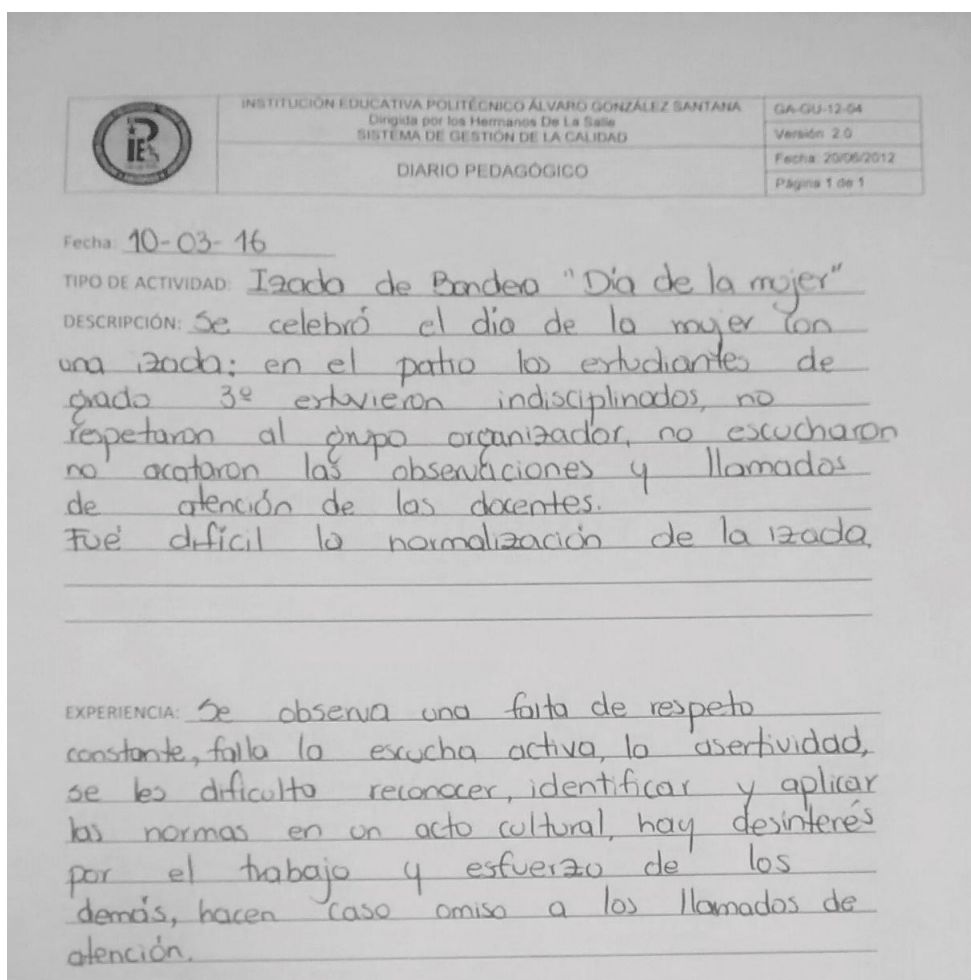 INSTITUCIÓN EDUCATIVA POLITÉCNICO ÁLVARO GONZÁLEZ SANTANA
Dirigida por los Hermanos De La Salle
SISTEMA DE GESTIÓN DE LA CALIDAD
DIARIO PEDAGÓGICO
GA-GU-12-04
Versión 2.0
Fecha: 20/06/2012
Página 1 de 1
Fecha: 10-03-16
TIPO DE ACTIVIDAD: Izada de Bandera "Día de la mujer"
DESCRIPCIÓN: Se celebró el día de la mujer con
una izada; en el patio los estudiantes de
grado 3º estuvieron indisciplinados, no
respetaron al grupo organizador, no escucharon
no acataron las observaciones y llamados
de atención de las docentes.
Fué difícil la normalización de la izada.
EXPERIENCIA: Se observa una falta de respeto
constante, falla la escucha activa, la asertividad,
se les dificulta reconocer, identificar y aplicar
las normas en un acto cultural, hay desinterés
por el trabajo y esfuerzo de los
demás, hacen caso omiso a los llamados de
atención.